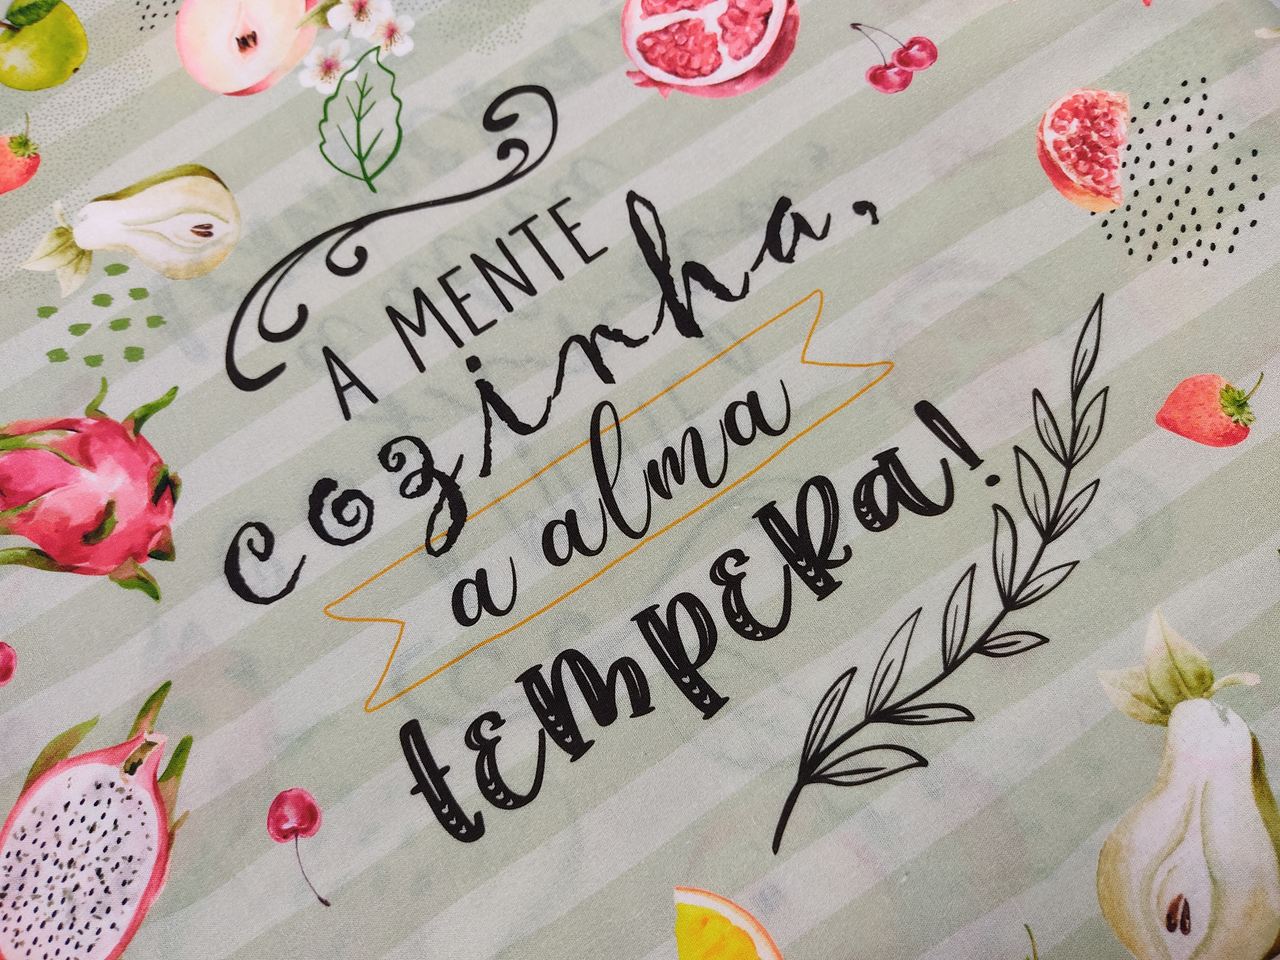 A MENTE
cozinha,
a alma
tempera!